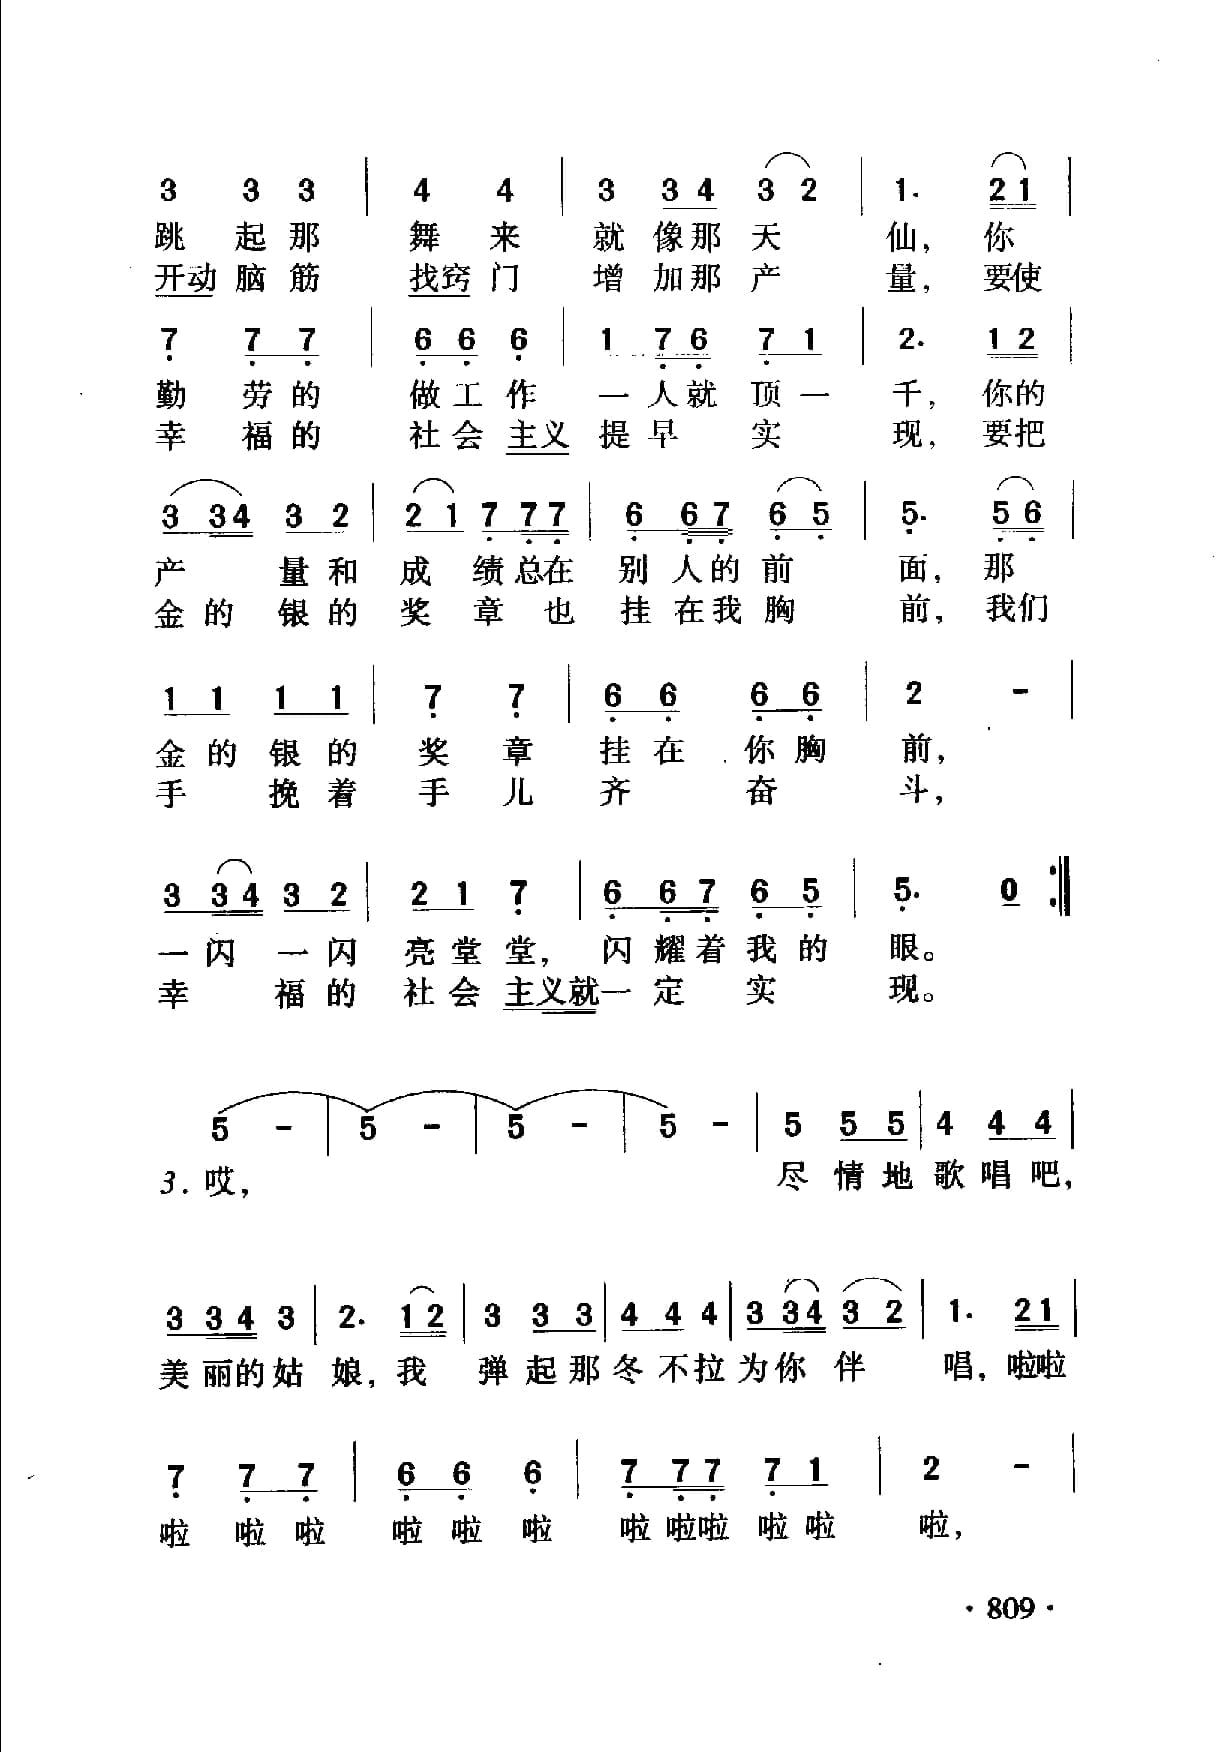 3 3 3 | 4 4 | 3 3 4 3 2 | 1. 2 1 |
跳 起 那 舞 来 就 像 那 天 仙, 你
开动 脑 筋 找窍 门 增 加 那 产 量, 要使
7 7 7 | 6 6 6 | 1 7 6 7 1 | 2. 1 2 |
勤 劳 的 做 工 作 一 人 就 顶 一 千, 你的
幸 福 的 社 会 主义 提 早 实 现, 要把
3 3 4 3 2 | 2 1 7 7 7 | 6 6 7 6 5 | 5. 5 6 |
产 量 和 成 绩 总在 别 人 的 前 面, 那
金 的 银 的 奖 章 也 挂 在 我 胸 前, 我们
1 1 1 1 | 7 7 | 6 6 6 6 | 2 - |
金 的 银 的 奖 章 挂 在 你 胸 前,
手 挽 着 手 儿 齐 奋 斗,
3 3 4 3 2 | 2 1 7 | 6 6 7 6 5 | 5. 0 :|
一 闪 一 闪 亮 堂 堂, 闪 耀 着 我 的 眼。
幸 福 的 社 会 主义就 一 定 实 现。
5 - | 5 - | 5 - | 5 - | 5 5 5 | 4 4 4 |
3. 哎, 尽 情 地 歌 唱 吧,
3 3 4 3 | 2. 1 2 | 3 3 3 | 4 4 4 | 3 3 4 3 2 | 1. 2 1 |
美 丽 的 姑 娘, 我 弹 起 那 冬 不 拉 为 你 伴 唱, 啦啦
7 7 7 | 6 6 6 | 7 7 7 7 1 | 2 - |
啦 啦 啦 啦 啦 啦 啦 啦啦 啦 啦 啦,
· 809 ·